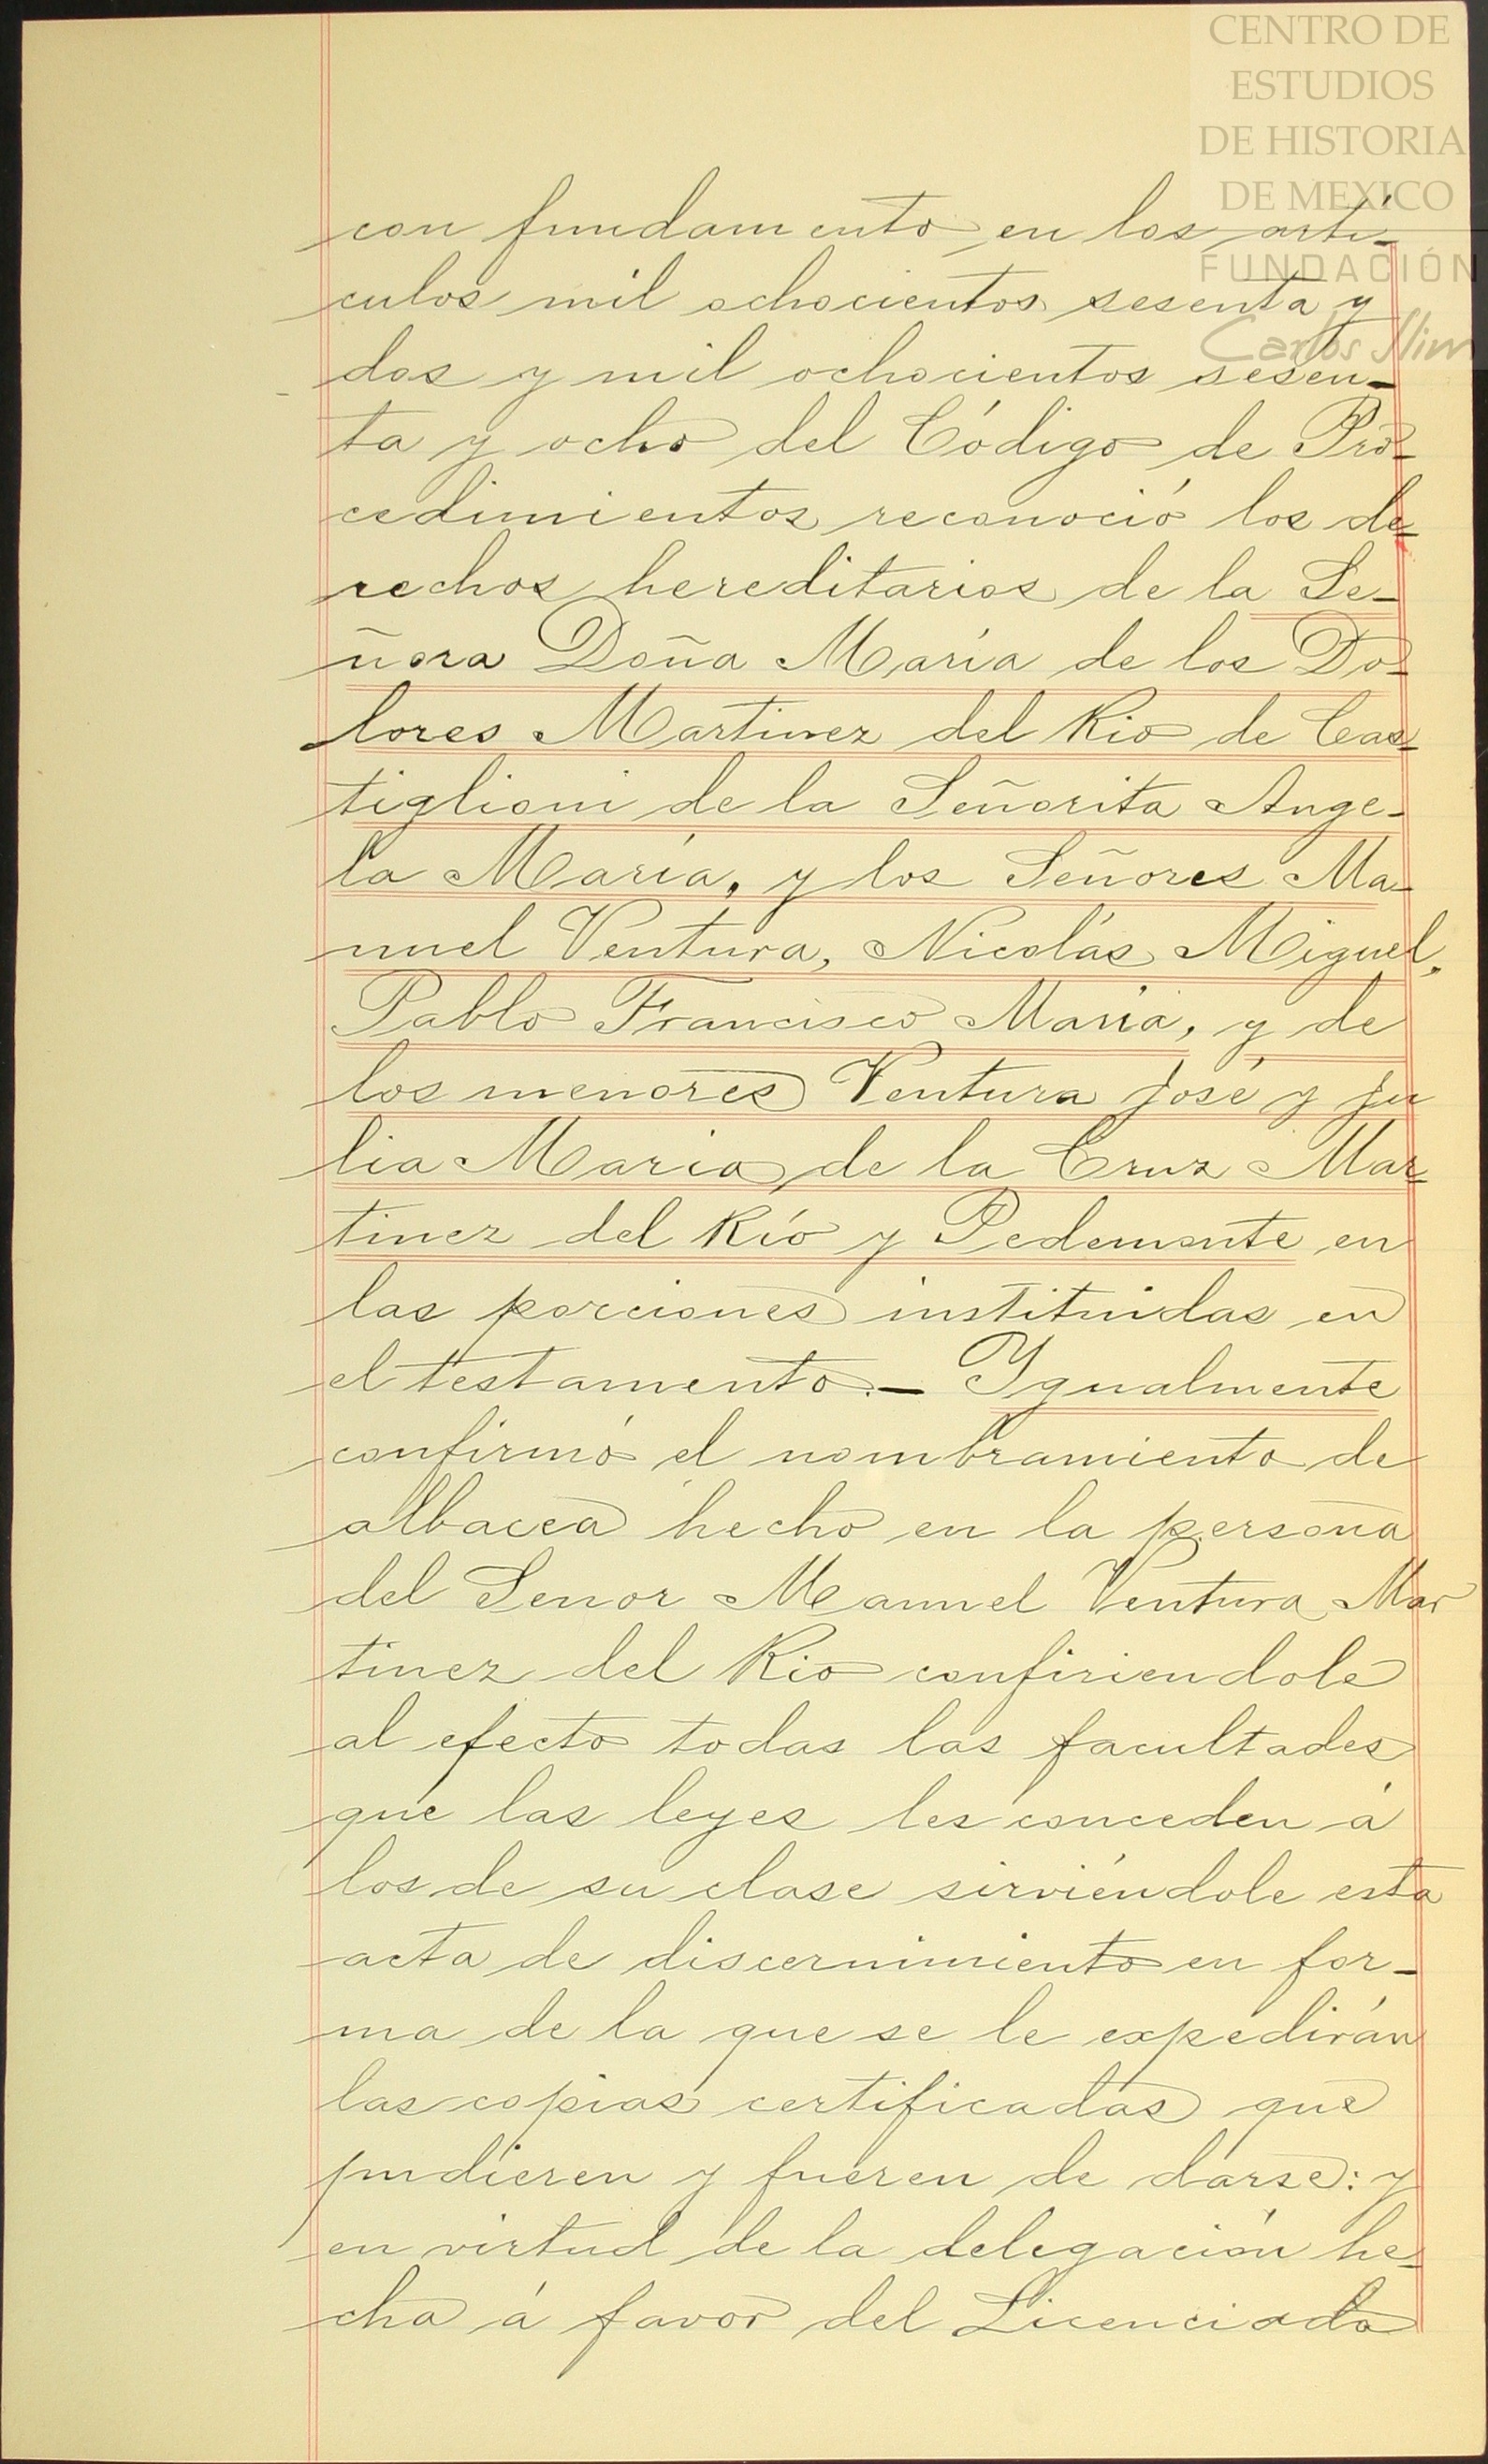 CENTRO DE
ESTUDIOS
DE HISTORIA
DE MEXICO
FUNDACIÓN
Carlos Slim
con fundamento en los artí-
culos mil ochocientos sesenta y
dos y mil ochocientos sesen-
ta y ocho del Código de Pro-
cedimientos reconoció los de-
rechos hereditarios de la Se-
ñora Doña María de los Do-
lores Martinez del Rio de Cas-
tiglioni de la Señorita Ange-
la María, y los Señores Ma-
nuel Ventura, Nicolás Miguel,
Pablo Francisco María, y de
los menores Ventura José y Ju
lia Maria de la Cruz Mar-
tinez del Río y Pedemonte en
las porciones instituidas en
el testamento.- Igualmente
confirmó el nombramiento de
albacea hecho en la persona
del Senor Manuel Ventura Mar
tinez del Rio confiriendole
al efecto todas las facultades
que las leyes les conceden á
los de su clase sirviéndole esta
acta de discernimiento en for-
ma de la que se le expedirán
las copias certificadas que
pudieren y fueren de darse: y
en virtud de la delegación he-
cha á favor del Licenciado